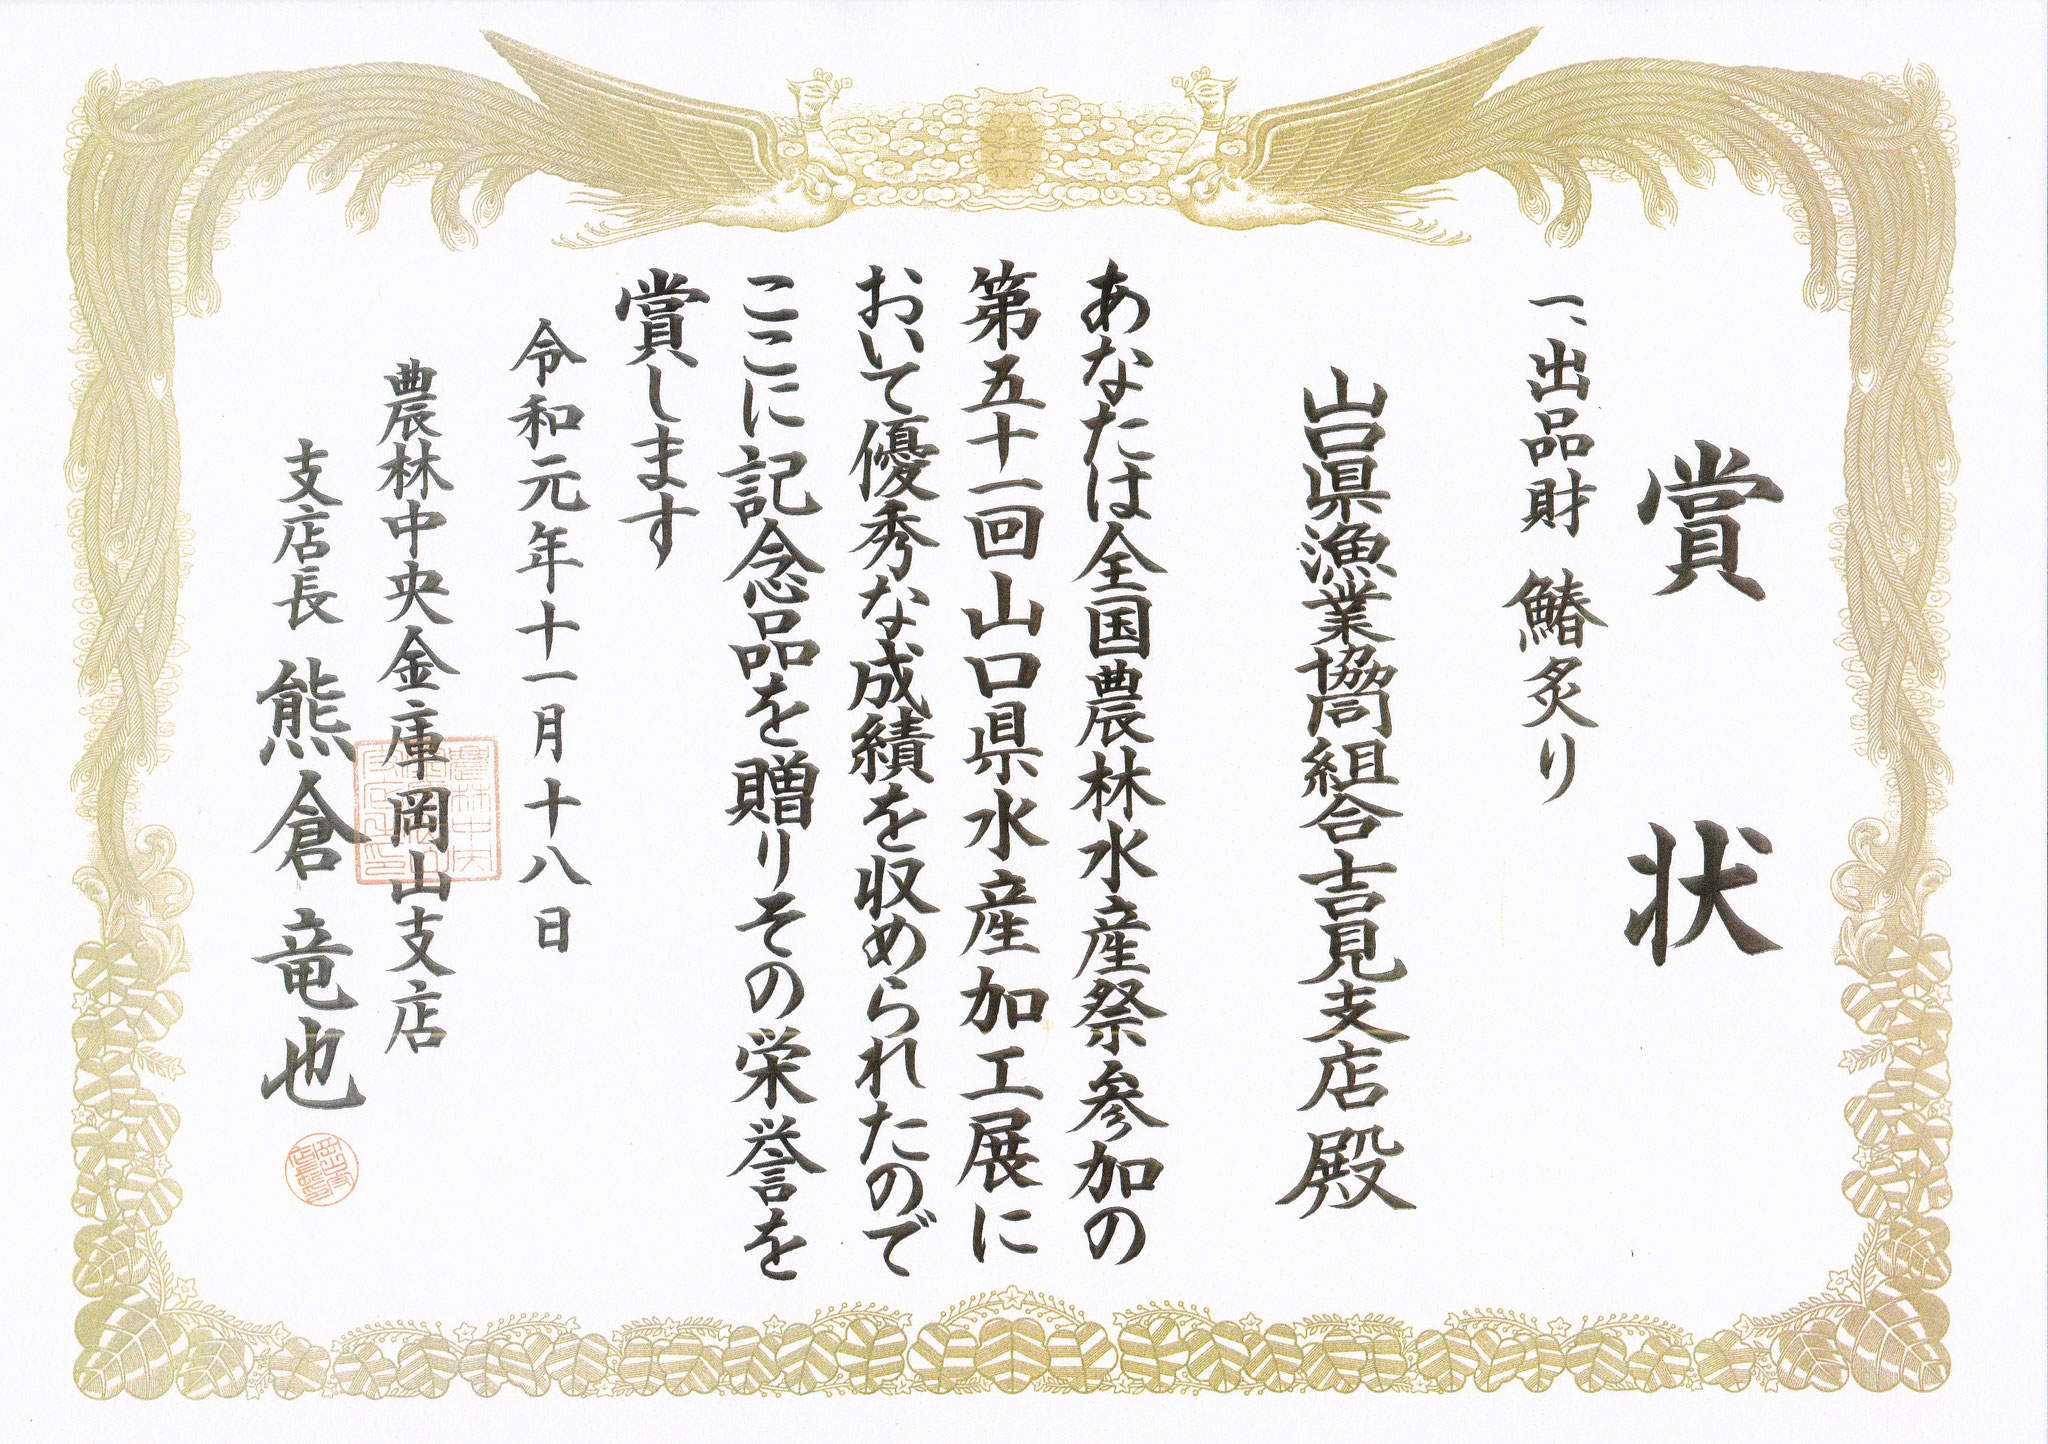 賞状
一、出品財 鰆炙り
山口県漁業協同組合吉見支店 殿
あなたは全国農林水産祭参加の
第五十一回山口県水産加工展に
おいて優秀な成績を収められたので
ここに記念品を贈りその栄誉を
賞します
令和元年十一月十八日
農林中央金庫岡山支店
支店長 熊倉竜也